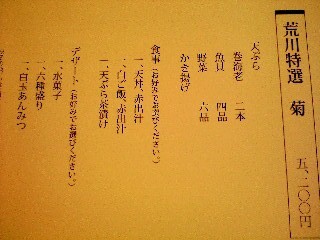 荒川特選 菊 五、二〇〇円
天ぷら
巻海老 二本
魚貝 四品
野菜 六品
かき揚げ
食事（お好みでお選びください。）
一、天丼、赤出汁
一、白ご飯、赤出汁
一、天ぷら茶漬け
デザート（お好みでお選びください。）
一、水菓子
一、六種盛り
一、白玉あんみつ